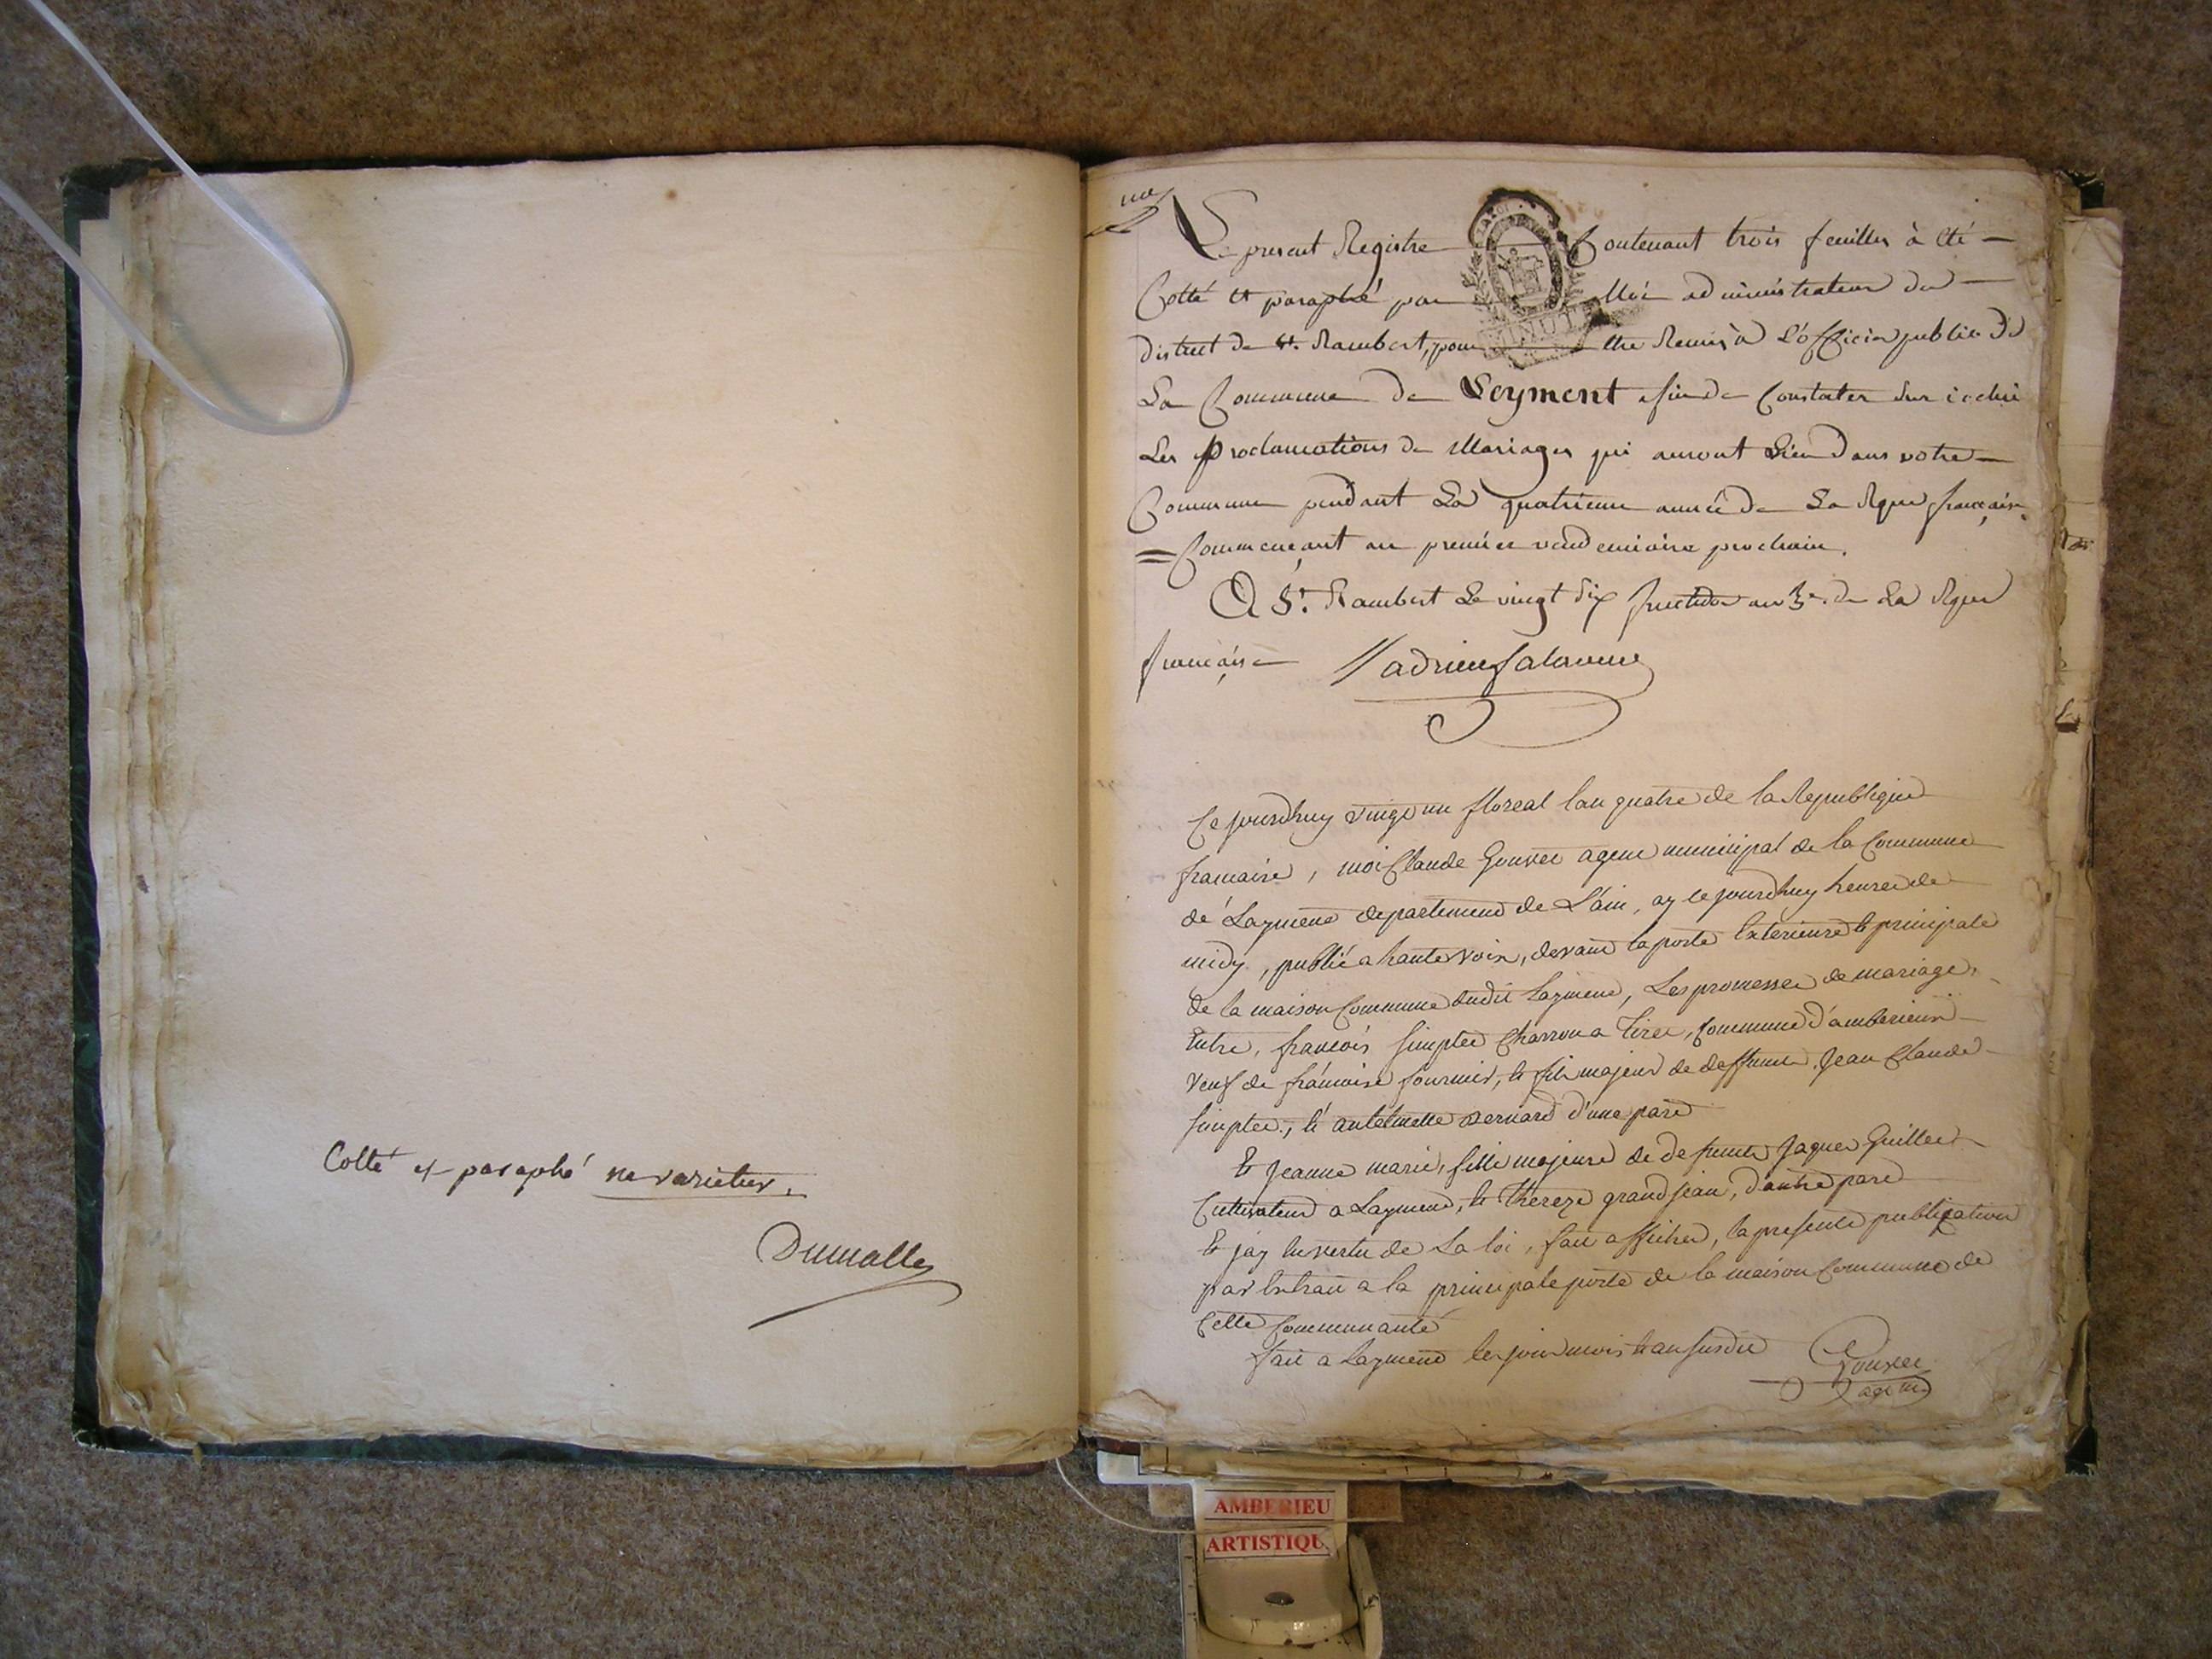 Cotté et paraphé ne varietur.
Dumalle
une
Le present Registre Contenant trois feuilles à été
Cotté et paraphé par Moi administrateur du
district de St. Rambert, pour etre Remis à L'officier public de
La Commune de Leyment afin de Constater sur icelui
Les Proclamations de Mariages qui auront Lieu dans votre
Commune pendant La quatrieme année de La Rque francaise
= Commençant au premier vendemiaire prochain.
A St. Rambert Le vingt six fructidor an 3e. de La Rque
française
MINUT
Ce jourdhuy vingt un floreal lan quatre de la Republique
francaise, moi Claude Gouvee agent municipal de la Commune
de Layment departement de L'ain, ay ce jourdhuy heure de
midy, publié a haute voix, devant la porte Exterieure et principale
de la maison Commune dudit Layment, Les promesses de mariage,
Entre, francois simplee Charron a Tiree, Commune d'amberieux
veuf de francoise fournier, et fils majeur de deffunts Jean Claude
simplee, et antelmette Bernard d'une part
Et Jeanne marie, fille majeure de defunts Jaques Guillee
Cultivateur a Layment, et thereze grandjean, d'autre part
Et jay En vertu de La loi, fait afficher, la presente publication
par Extrait a la principale porte de la maison Commune de
Cette Communauté
fait a Layment les jour mois et an susdit Gouvee
age m.
AMBERIEU
ARTISTIQU